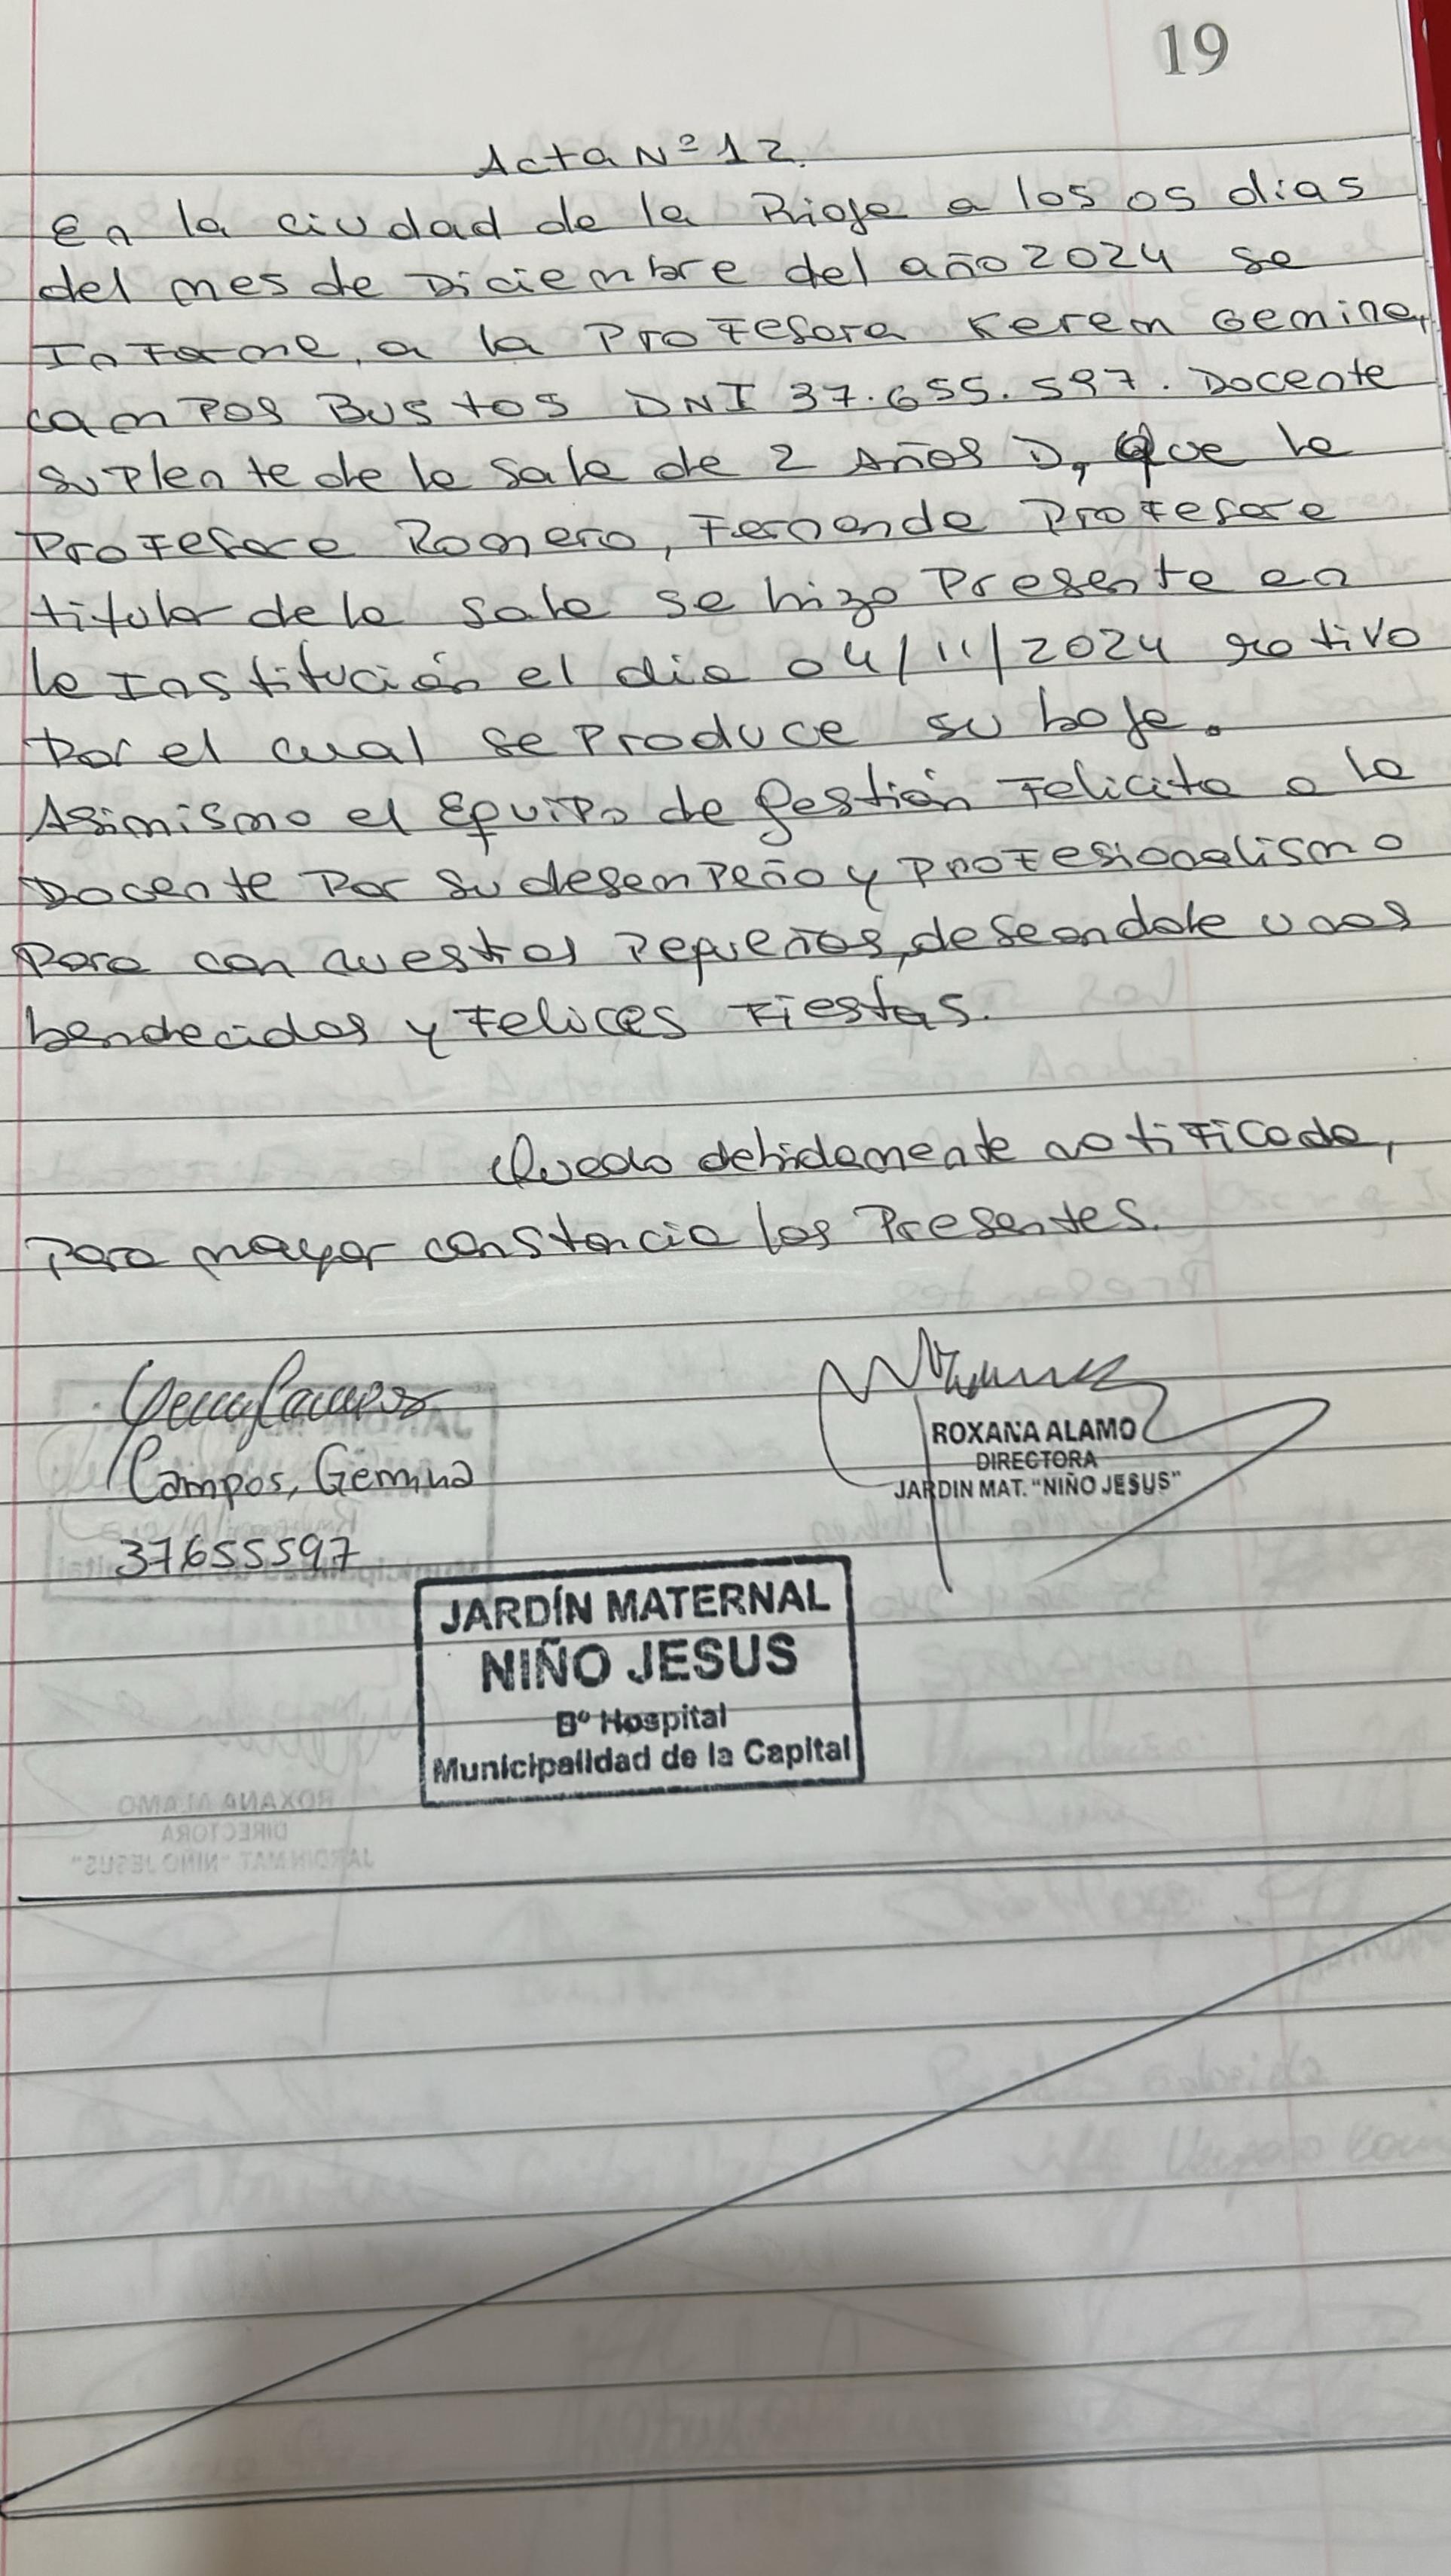 19
Acta Nº 12.
En la ciudad de la Rioja a los 05 días
del mes de Diciembre del año 2024 se
Informa, a la Profesora Kerem Gemina,
Campos Bustos DNI 37.655.597. Docente
suplente de la sala de 2 Años D, que la
Profesora Romero, Fernanda Profesora
titular de la sala se hizo Presente en
la Institución el día 04/11/2024 motivo
Por el cual se Produce su baja.
Asimismo el Equipo de gestión Felicita a la
Docente Por su desempeño y profesionalismo
Para con nuestros Pequeños, deseandole unas
bendecidas y Felices Fiestas.
Quedo debidamente notificada,
Para mayor constancia los Presentes.
Campos, Gemina
37655597
ROXANA ALAMO
DIRECTORA
JARDIN MAT. "NIÑO JESUS"
JARDÍN MATERNAL
NIÑO JESUS
Bº Hospital
Municipalidad de la Capital